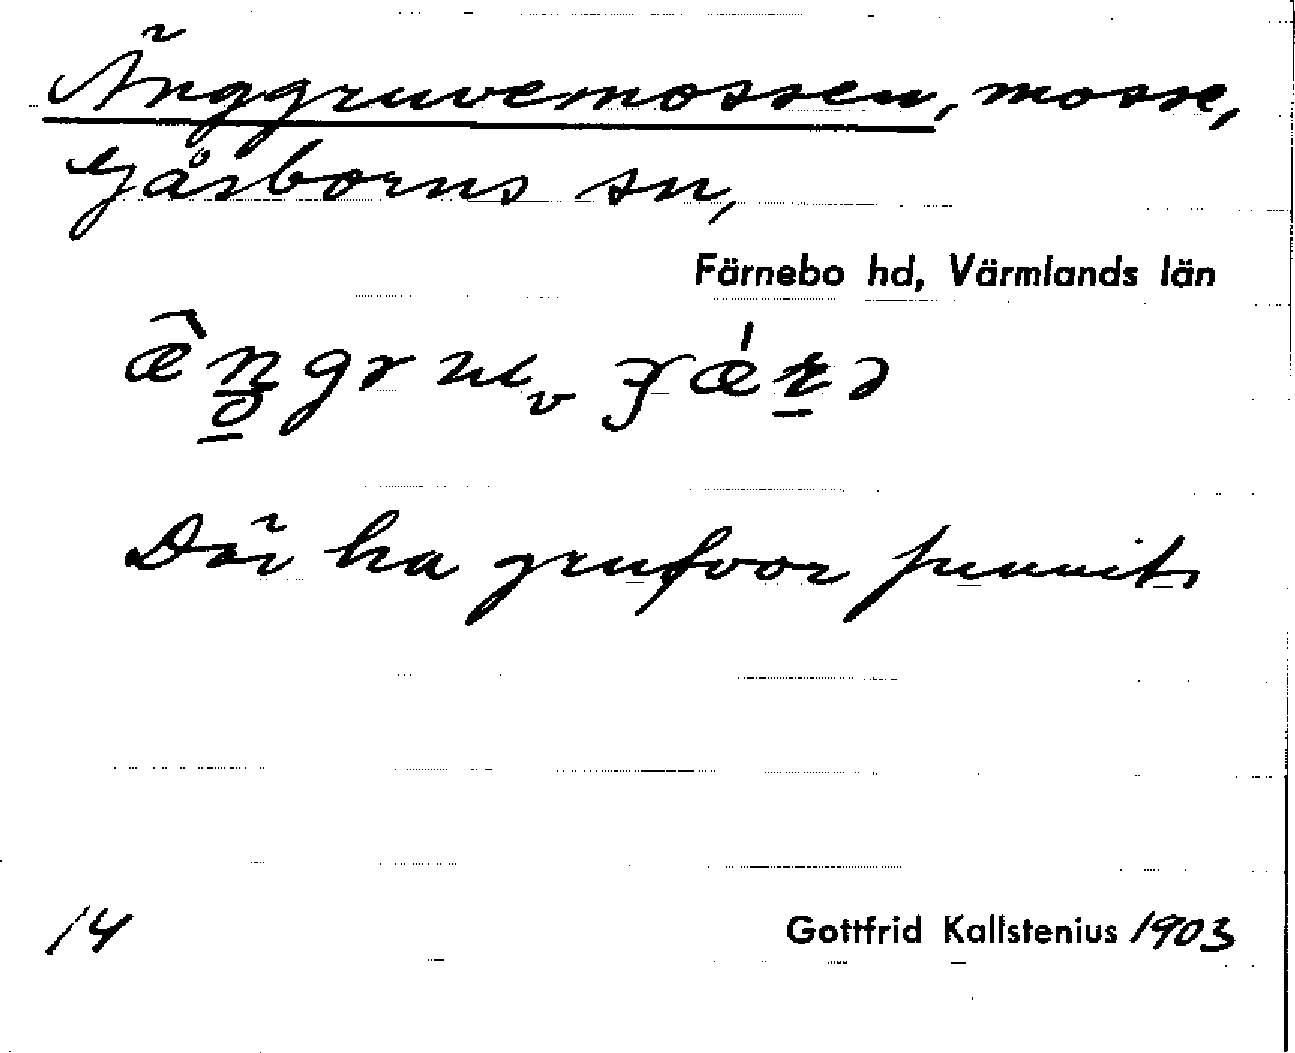 Änggruvemossen, mosse,
Gåsborns sn,
Färnebo hd, Värmlands län
Där ha grufvor funnits
14
Gottfrid Kallstenius 1903